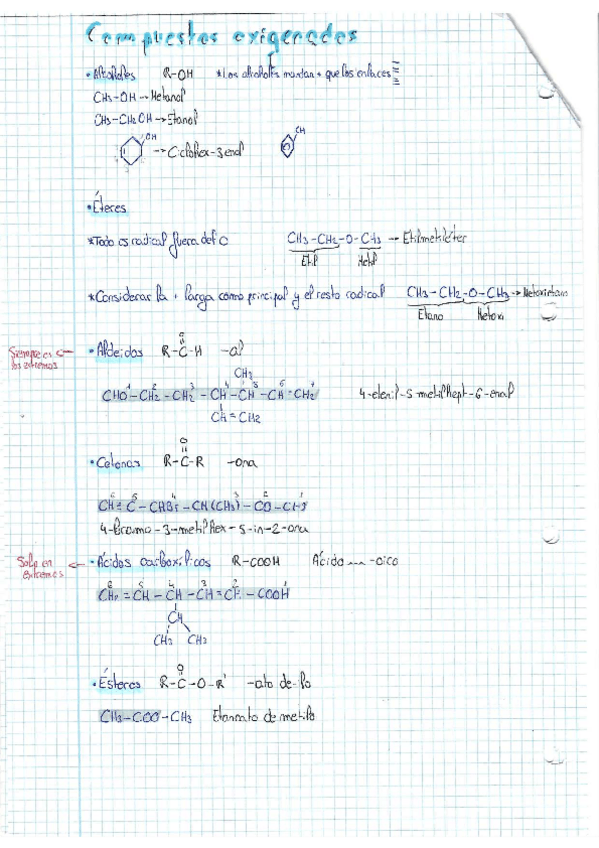 Compuestos oxigenados
• Alcoholes R-OH *Los alcoholes mandan + que los enlaces =
CH3-OH → Metanol
CH3-CH2OH → Etanol
OH → Ciclohex-3enol OH
• Éteres
*Todo es radical fuera del O CH3-CH2-O-CH3 → Etilmetiléter
Etil Metil
*Considerar la + larga como principal y el resto radical CH3-CH2-O-CH3 → Metoxietano
Etano Metoxi
Siempre es ← • Aldeidos R-C-H -al
los extremos O
CH3
CHO-CH2-CH2-CH-CH-CH=CH2 4-etenil-5-metilhept-6-enal
CH=CH2
• Cetonas R-C-R -ona
O
CH≡C-CHBr-CH(CH3)-CO-CH3
4-Bromo-3-metilhex-5-in-2-ona
Solo en ← • Ácidos carboxílicos R-COOH Ácido ... -oico
extremos
CH2=CH-CH-CH=CH-COOH
CH
CH3 CH3
• Ésteres R-C-O-R' -ato de -ilo
O
CH3-COO-CH3 Etanoato de metilo